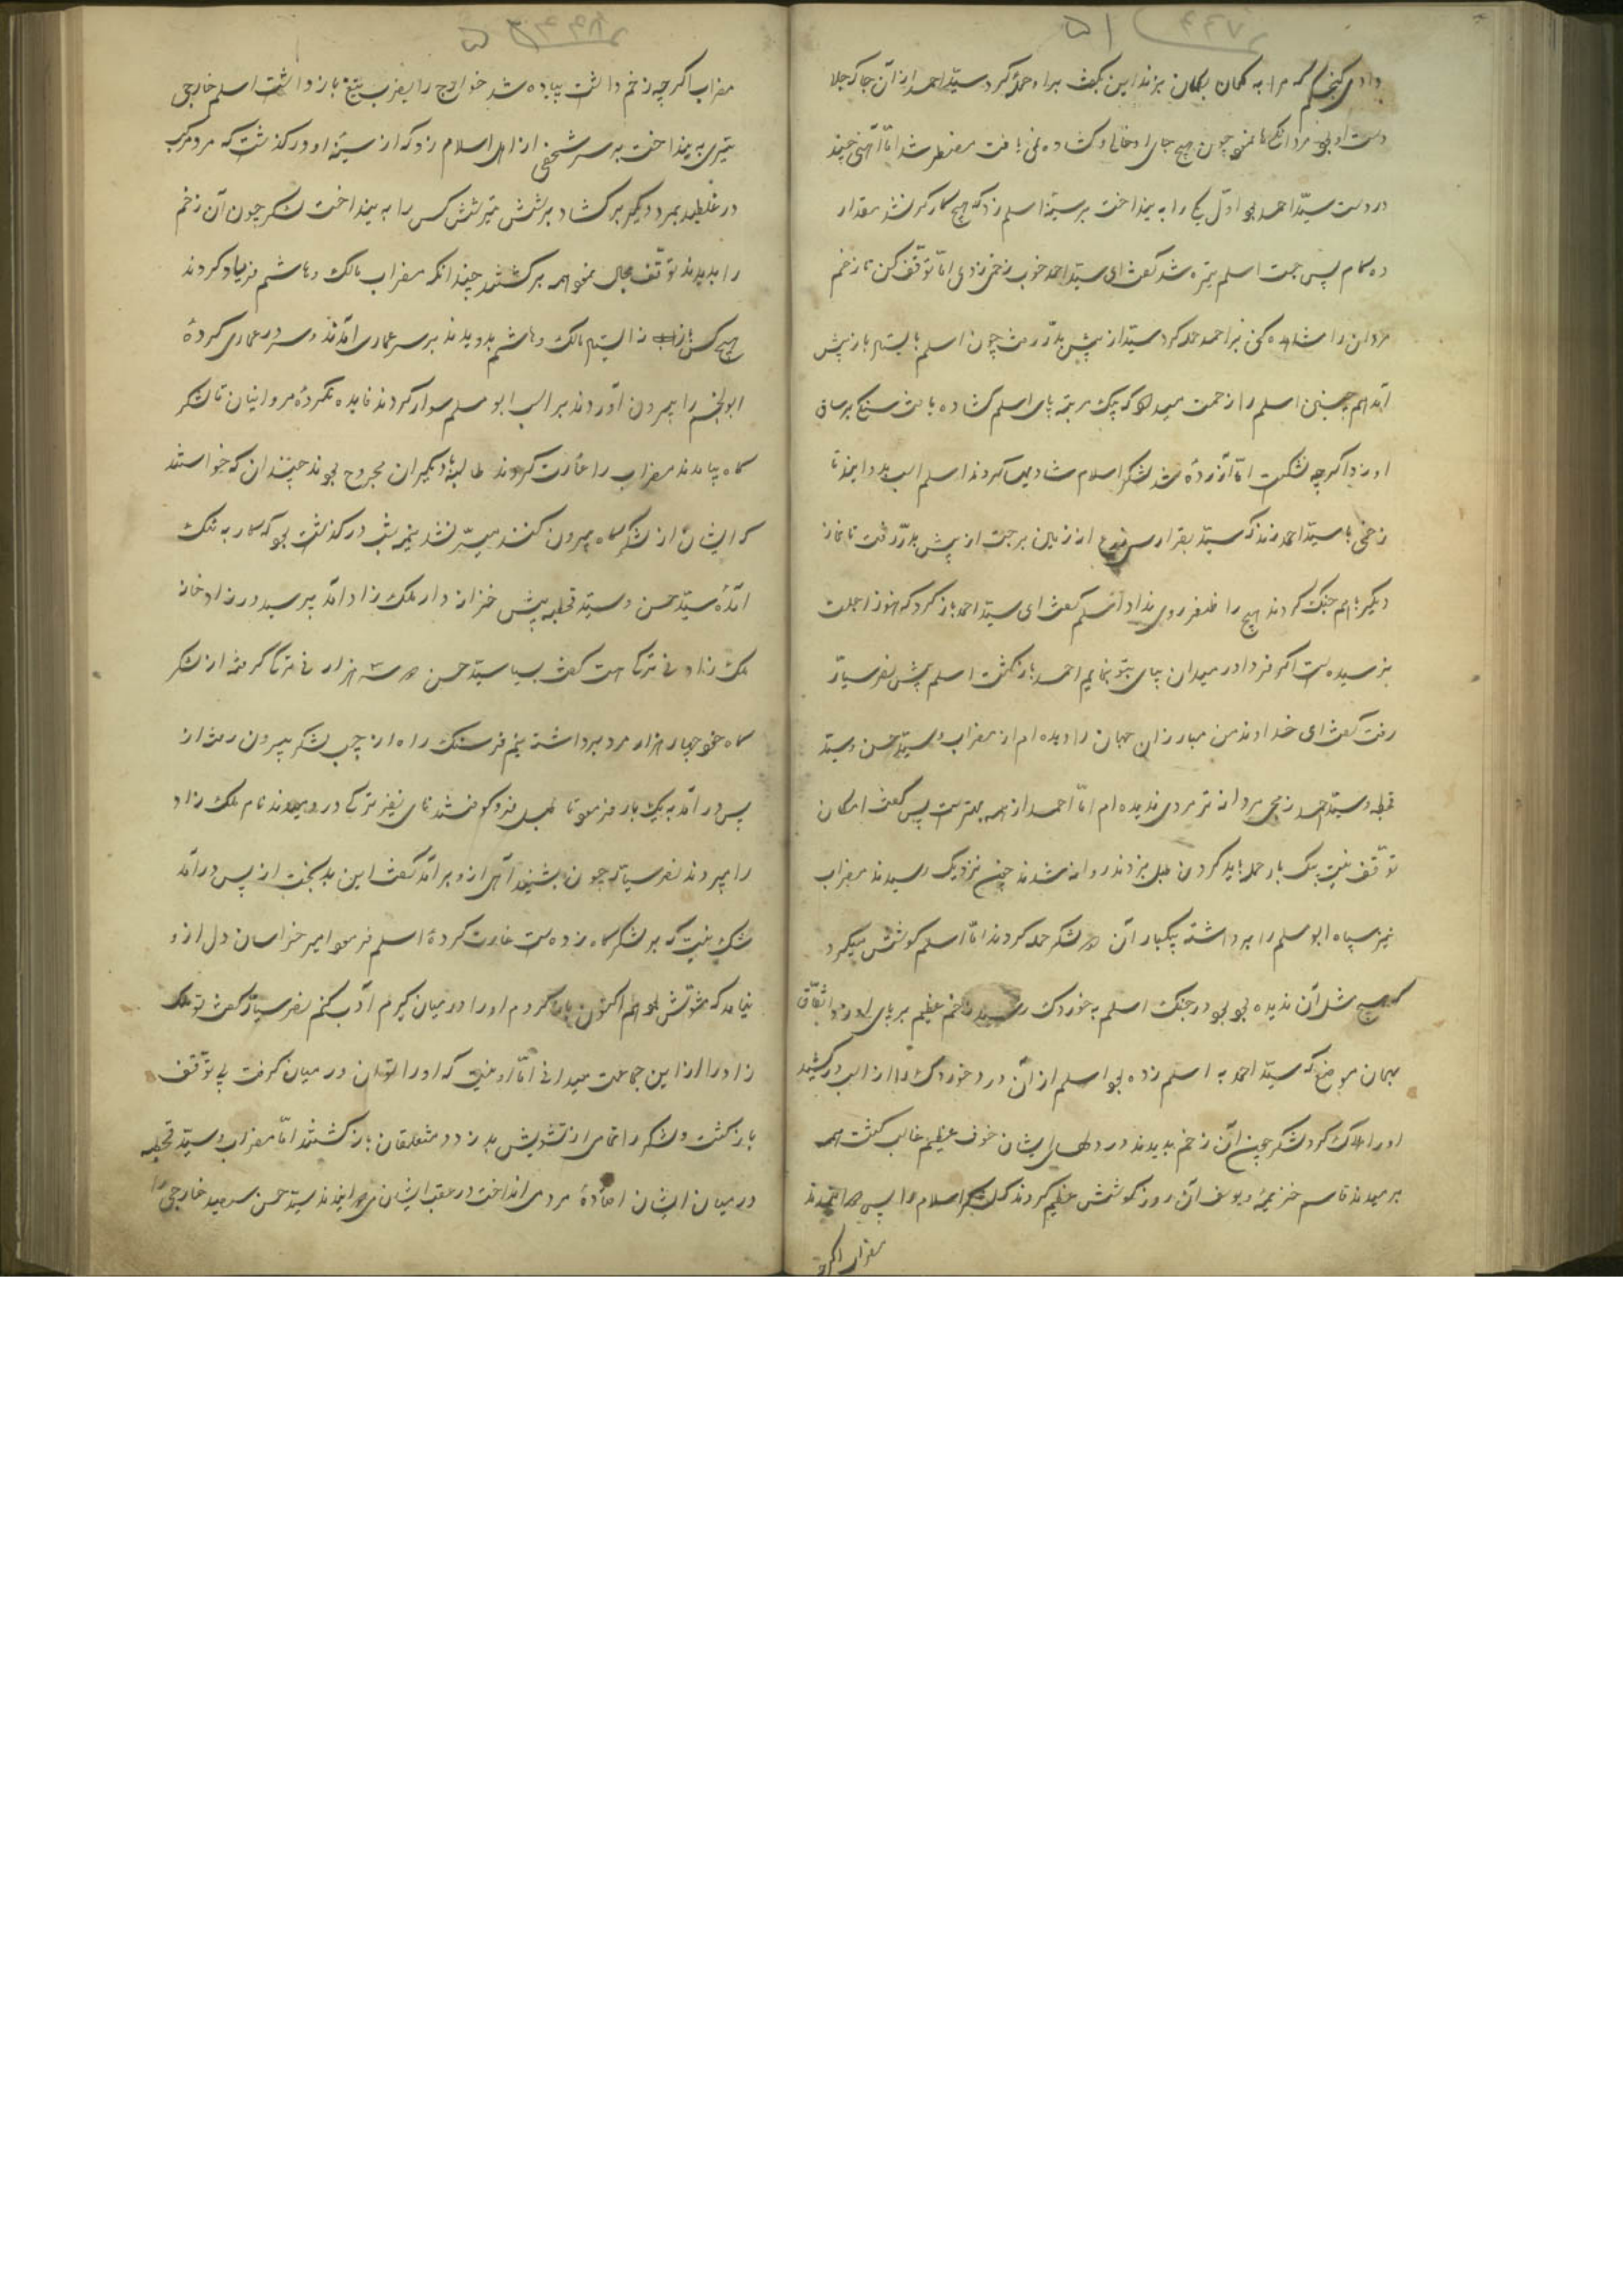 دادی کنجم که مرا به کمان بزند این بگفت برا و حمله کرد سید احمد از آن جا که جلا
دست او بود مردانگیها نمود چون هیچ جای او خالی و کشاده نمی یافت مضطر شد اما آهنی چند
در دست سید احمد بود اول یکی را به بینداخت بر سینه اسلم زد که هیچ کارگر نشد مقدار
ده کام پس جست اسلم تیره شد گفت ای سید احمد خوب زخمی زدی اما توقف کن تا زخم
مردان را مشاهده کنی بر احمد حمله کرد سید از پیش بدر رفت چون اسلم بایستاد باز پیش
آمد هم چنین اسلم را زحمت میداد که یک مرتبه پای اسلم کشاده یافت سنگی بر ساق
او زد اگر چه نشکست اما آزرده شد لشکر اسلام شادیها کردند اسلم اسب بدوانید تا
زخمی با سید احمد زند که سید بقرار از زمین برجست از پیش بدر رفت تا نماز
دیگر با هم جنگ کردند هیچ را ظفر روی نداد اسلم گفت ای سید احمد باز گرد که هنوز اجلت
نرسیده است اگر فردا در میدان بیای بتو بنمایم احمد باز گشت اسلم پیش نصر سیار
رفت گفت ای خداوند من مبارزان جهان را دیده ام از مضراب و سید حسن و سید
قحطبه و سید احمد زمجی مردانه تر مردی ندیده ام اما احمد از همه بهتر است پس گفت امکان
توقف نیست یک بار حمله باید کردن طبل بزدند روانه شدند چون نزدیک رسیدند مضراب
نیز سپاه ابو مسلم را برداشته یکبار آن دو لشکر حمله کردند اما اسلم کوشش میکرد
که هیچ مثل آن ندیده بود در جنگ اسلم به خوردک رسید زخم عظیم بر پای او زد اتفاق
بهمان موضع که سید احمد به اسلم زده بود اسلم از آن درد خوردک را از اسب در کشید
او را هلاک کرد لشکر چون آن زخم بدیدند در دلهای ایشان خوف عظیم غالب گشت همه
برمیدند قاسم خزیمه و یوسف آن روز کوشش عظیم کردند که لشکر اسلام را پس نشاندند
مضراب اگر چه
مضراب اگر چه زخم داشت پیاده شد خوارج را بضرب تیغ باز داشت اسلم خارجی
تیری به بینداخت بر سر شخصی از اهل اسلام زد که از سینه او در گذشت که مرد مرکب
در غلطید بمرد دیگر برکشاد بر شش تیر شش کس را به بینداخت لشکر چون آن زخم
را بدیدند توقف مجال ننمود همه برگشتند چندانکه مضراب مالک و هاشم فریاد کردند
هیچ کس باز نه ایستاد مالک و هاشم بدویدند بر سر عماری آمدند و سر در عماری کرده
ابو النجم را بیرون آوردند بر اسب ابو مسلم سوار کردند فایده نکرده مروانیان تا لشکر
گاه بیامدند مضراب را غارت کردند طالبه با دیگران مجروح بودند چندان که خواستند
که ایشان از لشکر گاه بیرون کنند میسر نشد نیم شب در گذشت بود که کار به تنگ
آمده سید حسن و سید قحطبه پیش خزانه دار ملک زاد آمد پرسید در زادخانه
ملک زاد نی ترکی هست گفت بسیار سید حسن دو سه هزار نی ترکی گرفته از لشکر
گاه خود چهار هزار مرد برداشته نیم فرسنگ راه از چپ لشکر بیرون رفت از
پس در آمد به یک بار فرمود تا طبل فرو کوفتند نای نفیر ترکی در دمیدند نام ملک زاد
را ببردند نصر سیار چون بشنید آهی از او برآمد گفت این بد بخت از پس در آمد
شک نیست که بر لشکر گاه زده است غارت کرده اسلم فرمود امیر خراسان دل از و
نیامد که مشوش بود هم اکنون باز گردم او را در میان گیرم ادب کنم نصر سیار گفت تو ملک
زاد را از این جماعت میدانی اما او نیست که او را توان در میان گرفت بی توقف
باز گشت و لشکر را تمامی از تشویش پدر زد و متعلقان باز گشتند اما مضراب و سید قحطبه
در میان ایشان افتاده مردی انداخت در عقب ایشان می راندند سید حسن سعید خارجی را